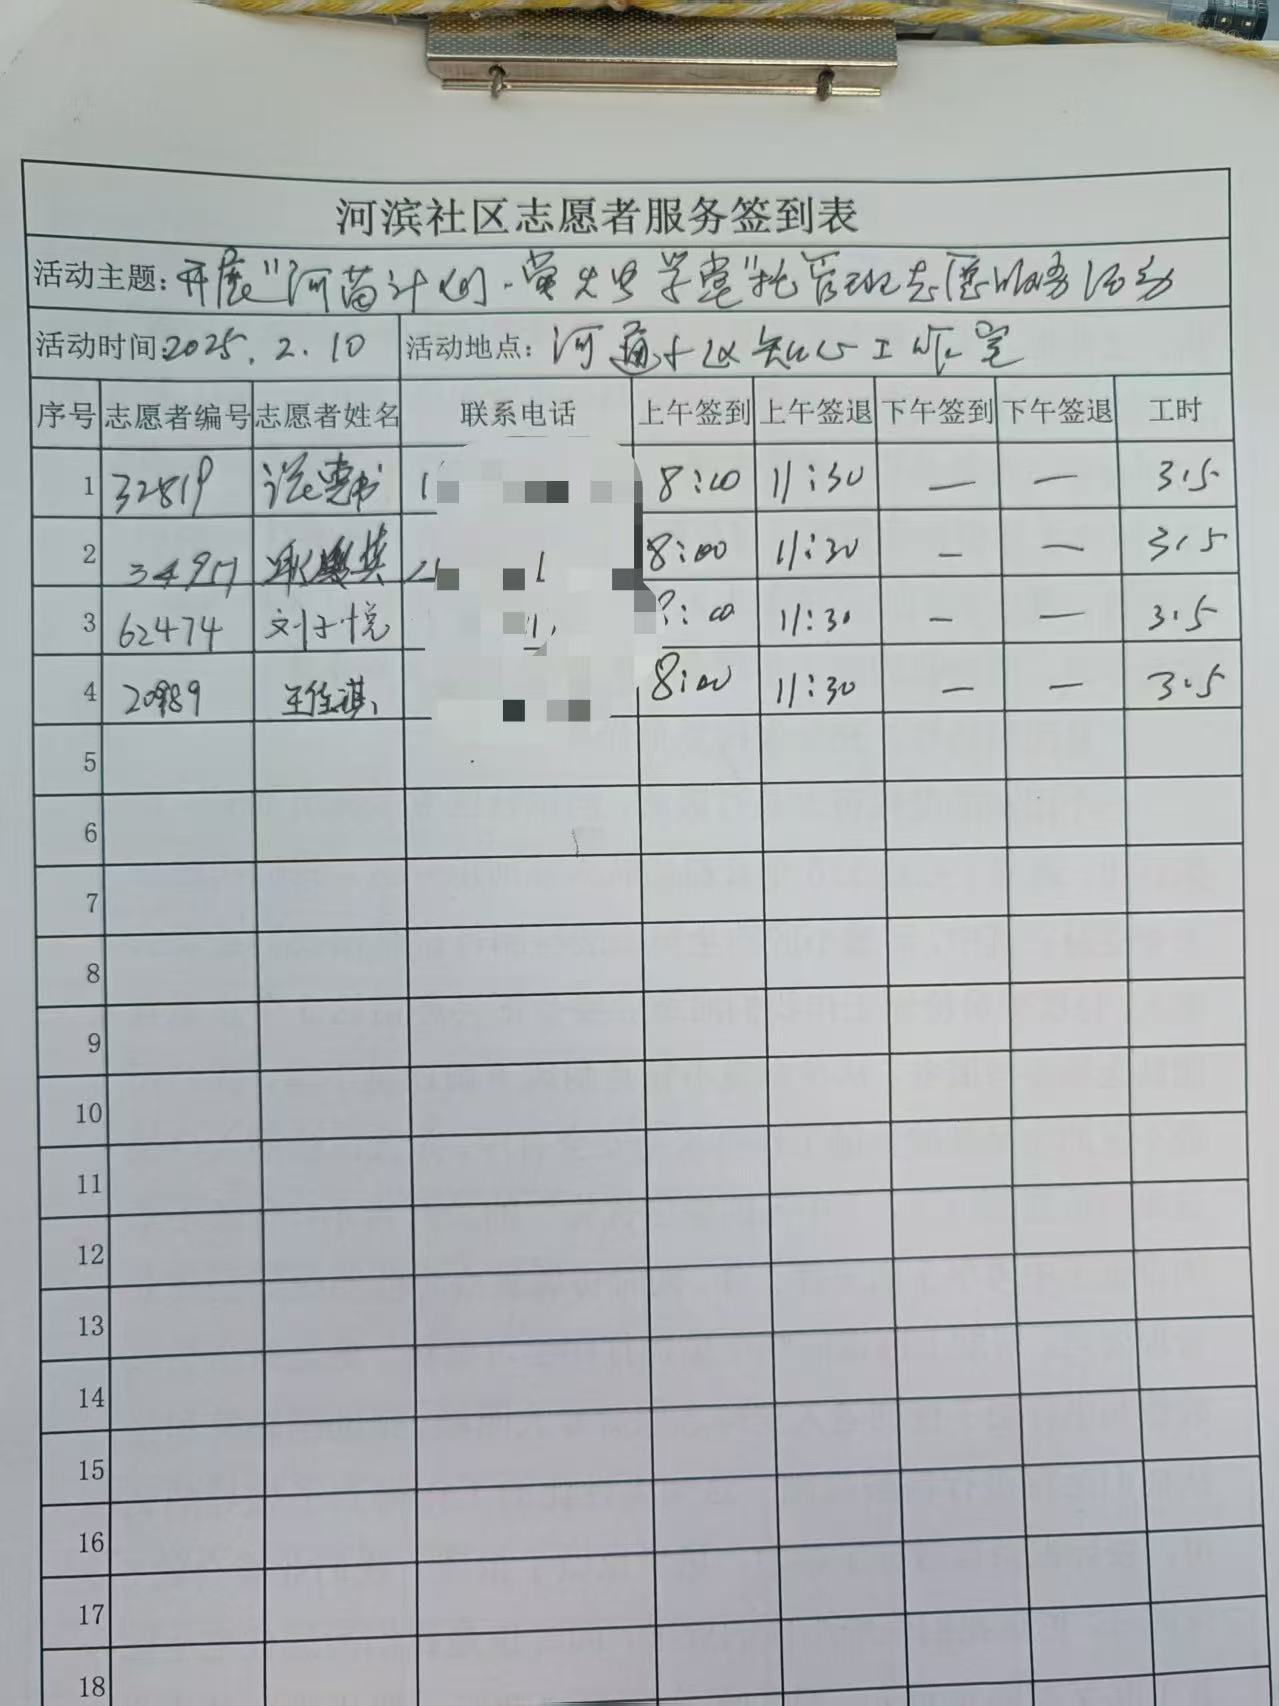 河滨社区志愿者服务签到表
活动主题：开展"河苗计划·萤火虫学堂"托管班志愿服务活动
活动时间：2025.2.10 活动地点：河 社区知心工作室
序号 志愿者编号 志愿者姓名 联系电话 上午签到 上午签退 下午签到 下午签退 工时
1 32819 1 8:00 11:30 — — 3.5
2 8:00 11:30 — — 3.5
3 62474 刘子悦 :00 11:30 — — 3.5
4 20989 王佳琪 8:00 11:30 — — 3.5
5
6
7
8
9
10
11
12
13
14
15
16
17
18